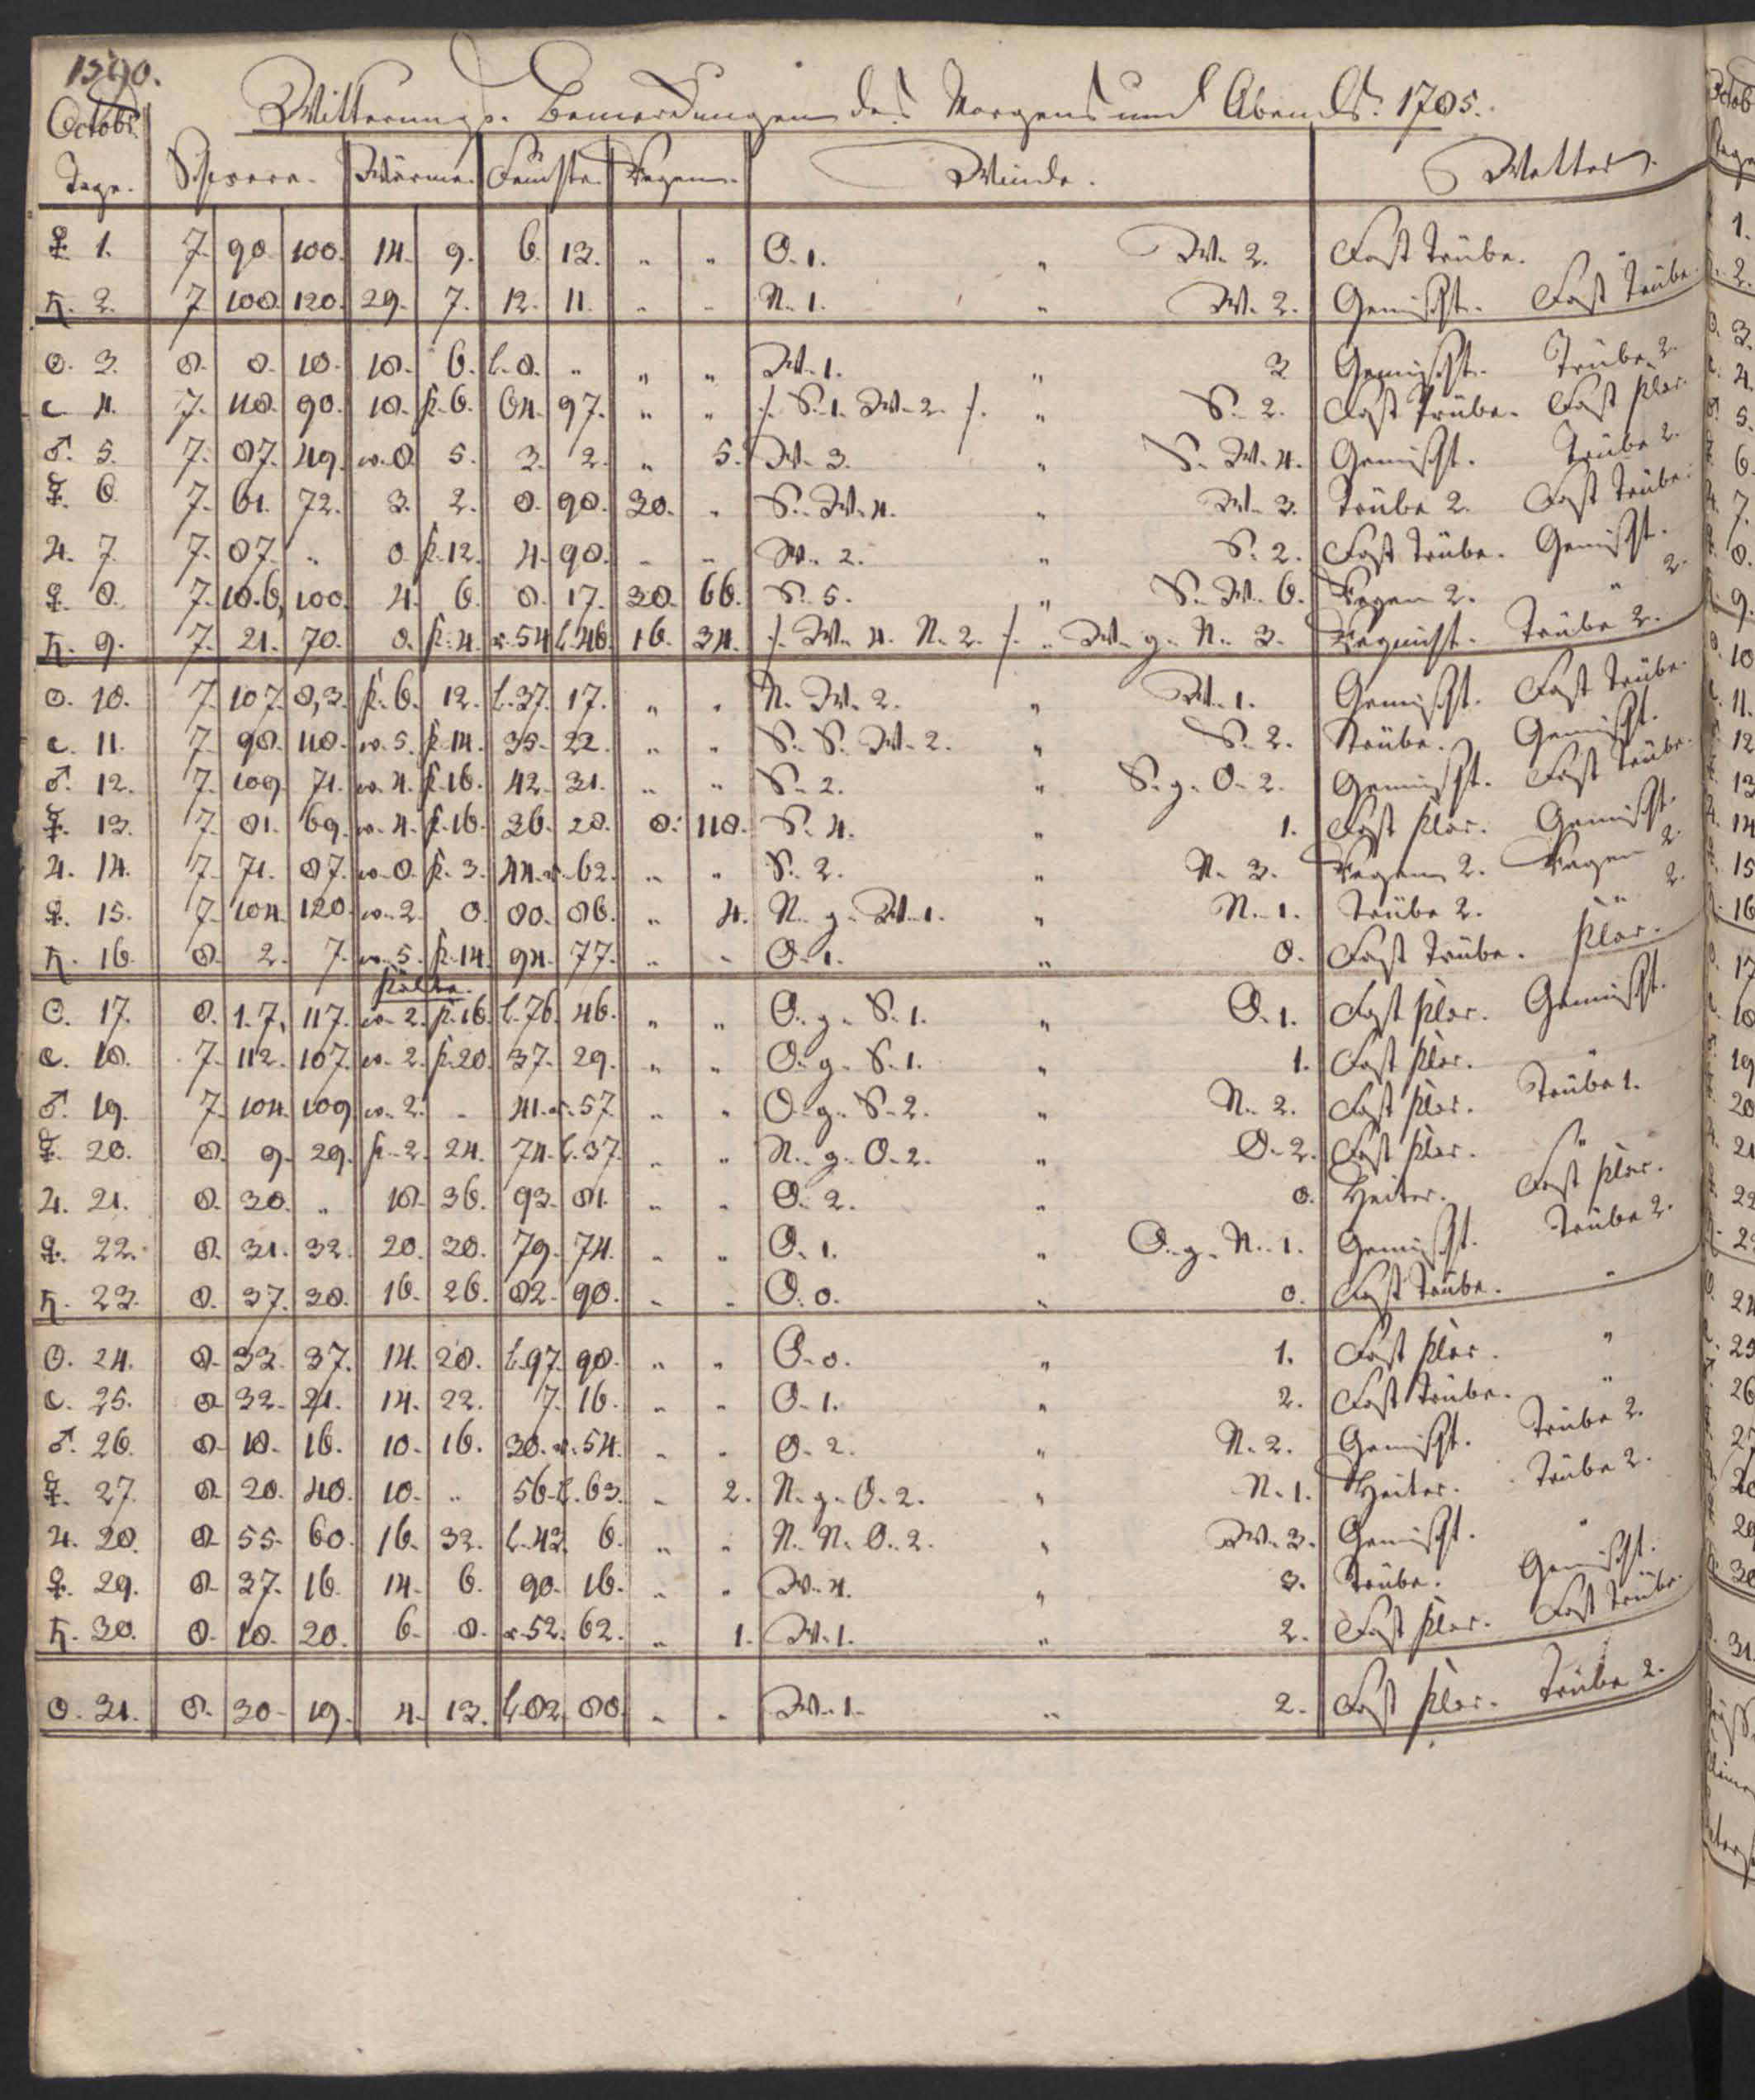 1390.
Octobr. Witterungs-Bemerckungen des Morgens und Abends. 1785.
Tage. Schwere. Wärme. Feuchte. Regen. Winde. Wetter.
♀. 1. 7. 98. 100. 14. 9. 6. 13. " " O. 1. " W. 2. Fast Trübe. "
♄. 2. 7. 108. 120. 29. 7. 12. 11. " " N. 1. " W. 2. Gemischt. Fast Trübe.
☉. 3. 8. 8. 10. 18. 6. l. 8. " " " W. 1. " 3 Gemischt. Trübe 2.
☾ 4. 7. 118. 90. 18. k. 6. 84. 97. " " /. S. 1. W. 2. /. " S. 2. Fast Trübe. Fast klar.
♂. 5. 7. 87. 49. w. 8. 5. 3. 2. " 5. W. 3. " S. W. 4. Gemischt. Trübe 2.
☿. 6. 7. 61. 72. 3. 2. 8. 98. 30. " S. W. 4. " W. 3. Trübe 2. Fast Trübe.
♃. 7. 7. 87. " 0. k. 12. 4. 98. " " W. 2. " S. 2. Fast Trübe. Gemischt.
♀. 8. 7. 10.6, 100. 4. 6. 8. 17. 38. 66. S. 5. " S. W. 6. Regen 2. " 2.
♄. 9. 7. 21. 70. 0. k. 4. r. 54 l. 46. 16. 34. /. W. 4. N. 2. /. " W. g. N. 3. Regnicht. Trübe 2.
☉. 10. 7. 107. 8,3. k. 6. 12. l. 37. 17. " " N. W. 2. " W. 1. Gemischt. Fast Trübe.
☾. 11. 7. 98. 118. w. 5. k. 14. 35. 22. " " S. S. W. 2. " S. 2. Trübe. Gemischt.
♂. 12. 7. 109. 71. w. 4. k. 16. 42. 31. " " S. 2. " S. g. O. 2. Gemischt. Fast Trübe.
☿. 13. 7. 81. 69. w. 4. k. 10. 36. 28. 8. 118. S. 4. " 1. Fast klar. Gemischt.
♃. 14. 7. 71. 87. w. 8. k. 3. 44. r. 62. " " S. 2. " N. 3. Regen 2. Regen 2.
♀. 15. 7. 104. 120. w. 2. 0. 80. 86. " 4. N. g. W. 1. " N. 1. Trübe 2. " 2.
♄. 16. 8. 2. 7. w. 5. k. 14. 94. 77. " " O. 1. " 0. Fast Trübe. klar.
Kälte.
☉. 17. 8. 1. 7, 117. w. 2. k. 16. l. 76. 46. " " O. g. S. 1. " O. 1. Fast klar. Gemischt.
☾. 18. 7. 112. 107. w. 2. k. 20. 37. 29. " " O. g. S. 1. " 1. Fast klar. "
♂. 19. 7. 104. 109. w. 2. " 41. r. 57. " " O. g. S. 2. " N. 2. Fast klar. Trübe 1.
☿. 20. 8. 9. 29. k. 2. 24. 74. l. 37. " " N. g. O. 2. " O. 2. Fast klar. "
♃. 21. 8. 30. " 18. 36. 93. 81. " " O. 2. " 0. Heiter. Fast klar.
♀. 22. 8. 31. 32. 20. 30. 79. 74. " " O. 1. " O. g. N. 1. Gemischt. Trübe 2.
♄. 23. 8. 37. 38. 16. 26. 82. 90. " " O. 0. " 0. Fast Trübe. "
☉. 24. 8. 33. 37. 14. 28. l. 97. 98. " " O. 0. " 1. Fast klar. "
☾. 25. 8. 32. 21. 14. 22. 7. 16. " " O. 1. " 2. Fast Trübe. "
♂. 26. 8. 18. 16. 10. 16. 30. r. 54. " " O. 2. " N. 2. Gemischt. Trübe 2.
☿. 27. 8. 20. 40. 10. " 56. l. 63. " 2. N. g. O. 2. " N. 1. Heiter. Trübe 2.
♃. 28. 8. 55. 60. 16. 32. l. 43. 6. " " N. N. O. 2. " W. 3. Gemischt. "
♀. 29. 8. 37. 16. 14. 6. 90. 16. " " W. 4. " 3. Trübe. Gemischt.
♄. 30. 8. 18. 20. 6. 8. r. 52. 62. " 1. W. 1. " 2. Fast klar. Fast Trübe.
☉. 31. 8. 30. 19. 4. 13. l. 82. 88. " " W. 1. " 2. Fast klar. Trübe 2.